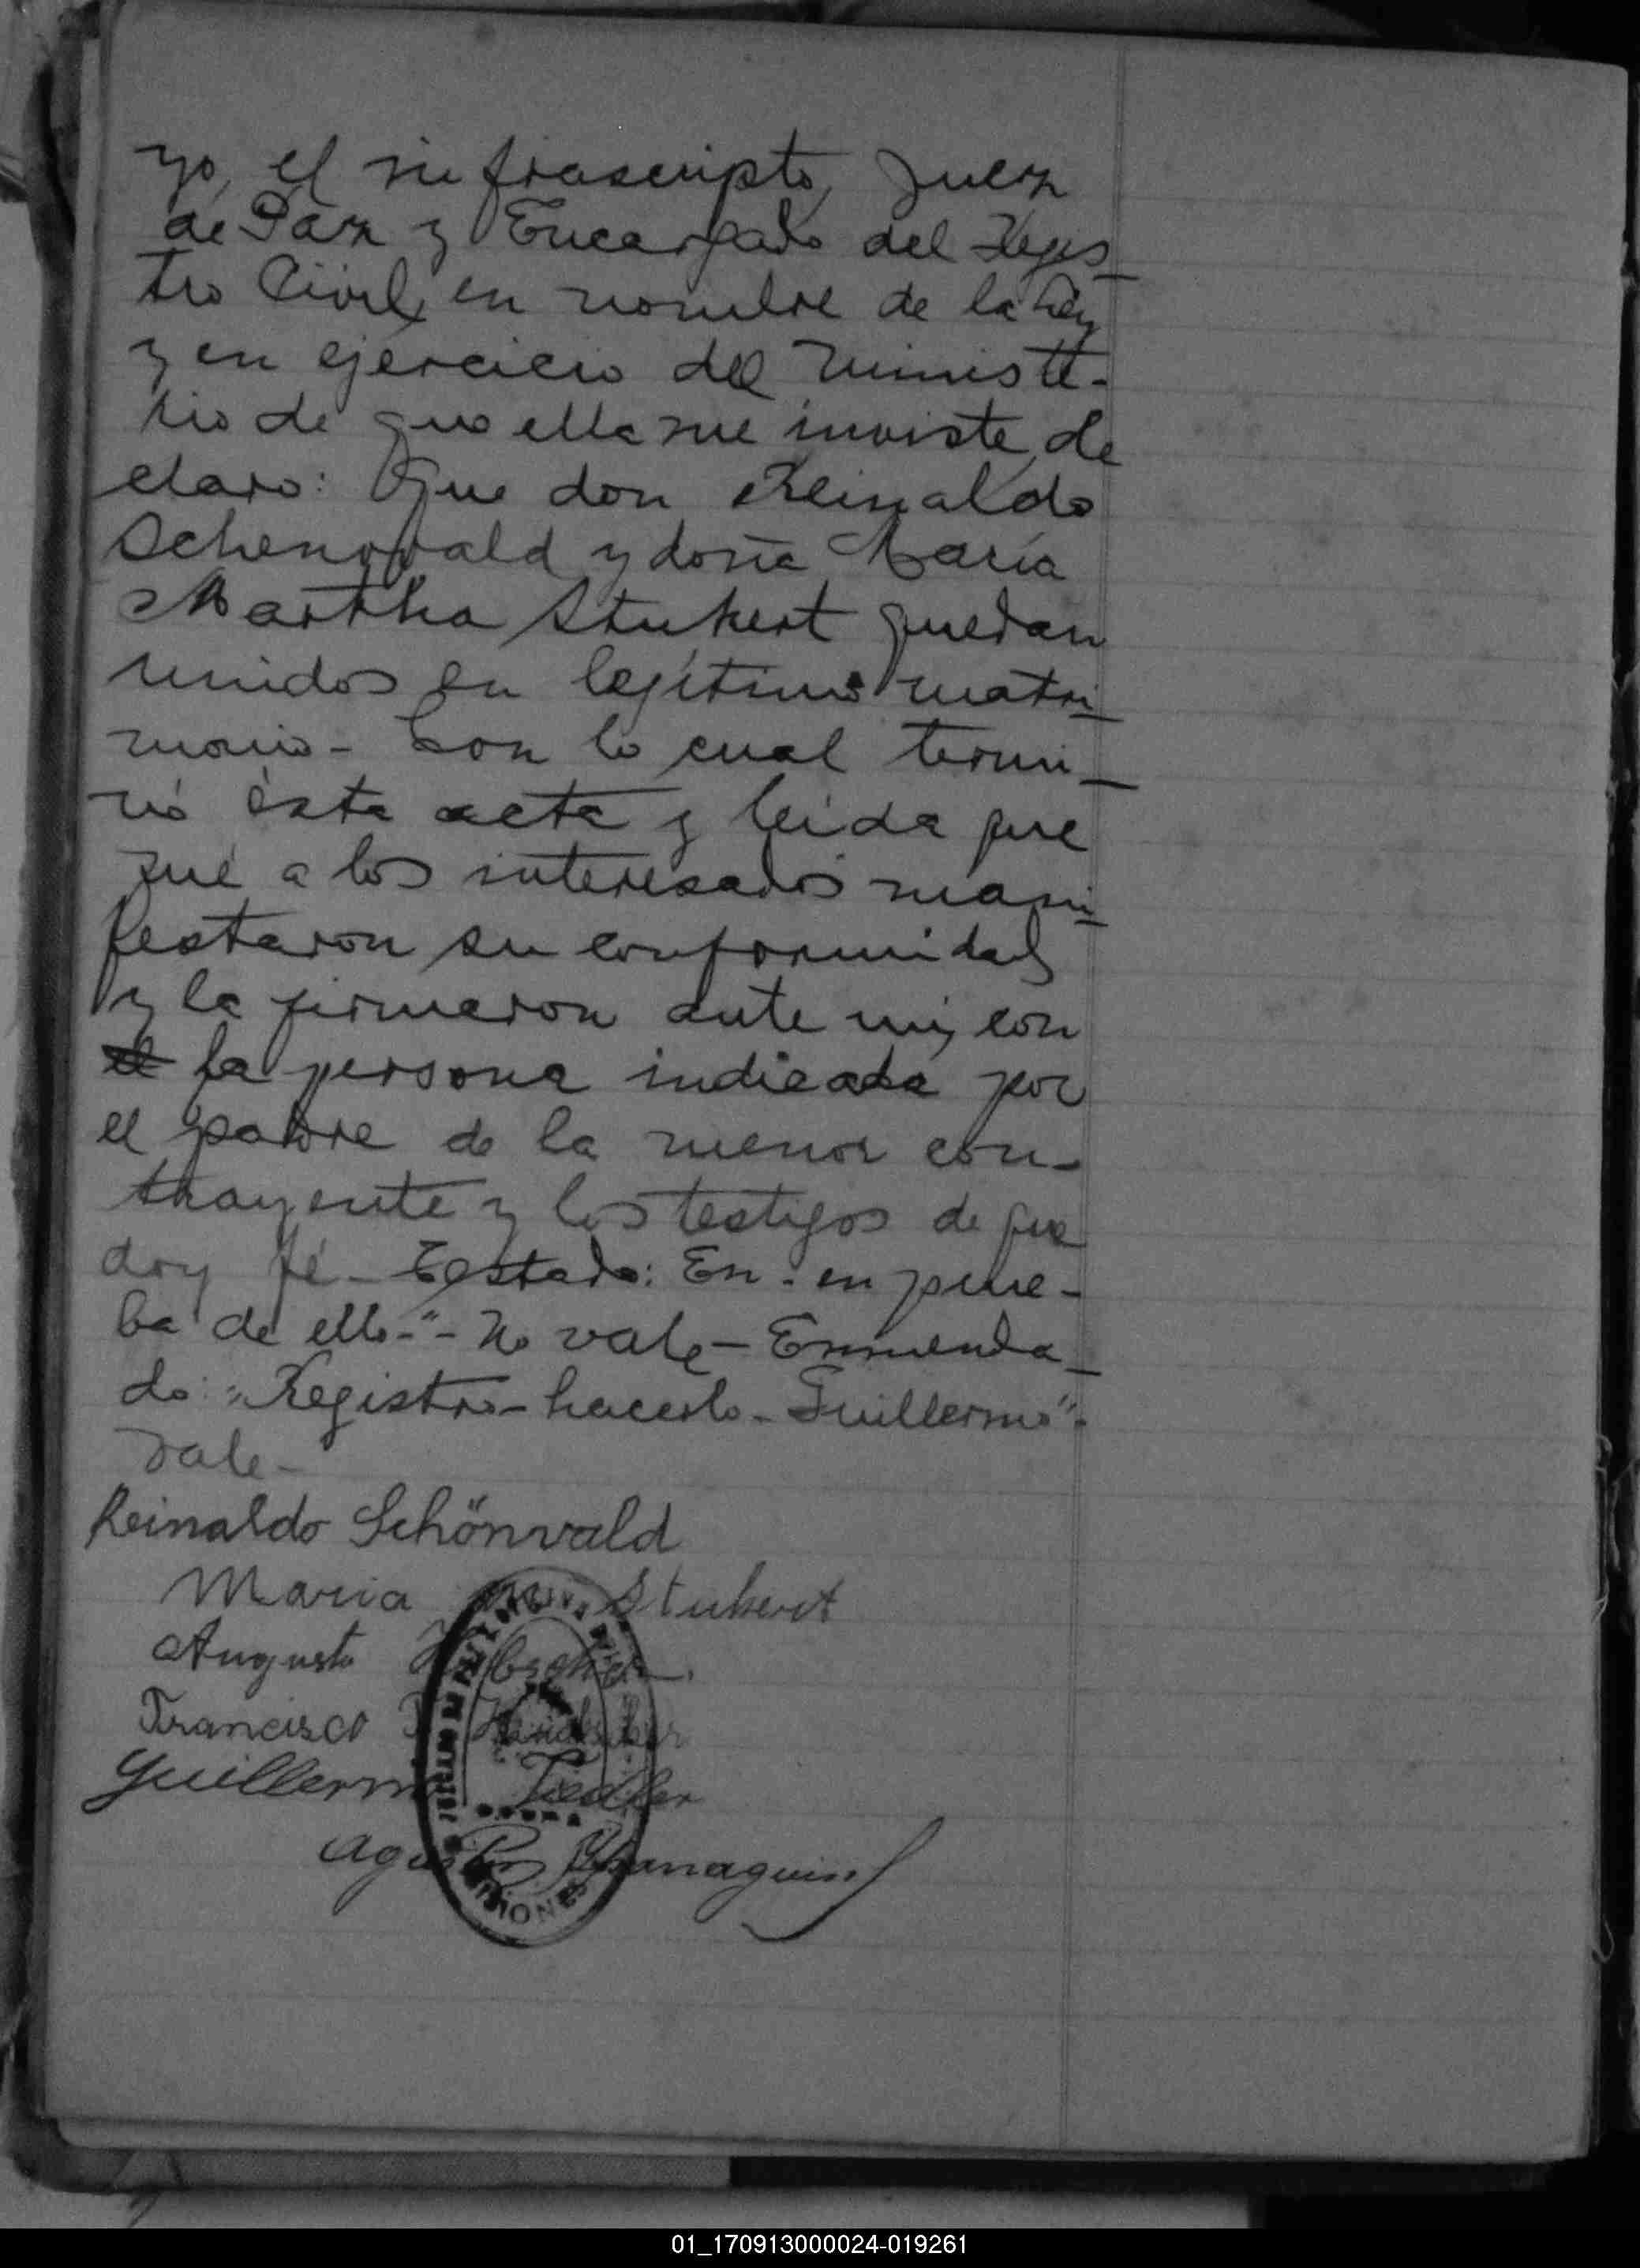 yo, el infrascripto, Juez
de Paz y Encargado del Regis_
tro Civil, en nombre de la Ley
y en ejercicio del ministe-
rio de que ella me inviste, de
claro: Que don Reinaldo
Schenovald y doña María
Martha Stukert quedan
unidos en legítimo matri_
monio - Con lo cual termi_
nó ésta acta y leida que
fué a los interesados mani_
festaron su conformidad
y la firmaron ante mi, con
el la persona indicada por
el padre de la menor con-
trayente y los testigos de que
doy fé - Testado: En - en prue-
ba de ello -"- No vale - Enmenda_
do: "Registro - hacerlo - Guillermo" -
Vale -
Reinaldo Schönvald
Maria Stukert
Augusto
Francisco
Guillermo Fiedler
Agustin
MISIONES
01_170913000024-019261